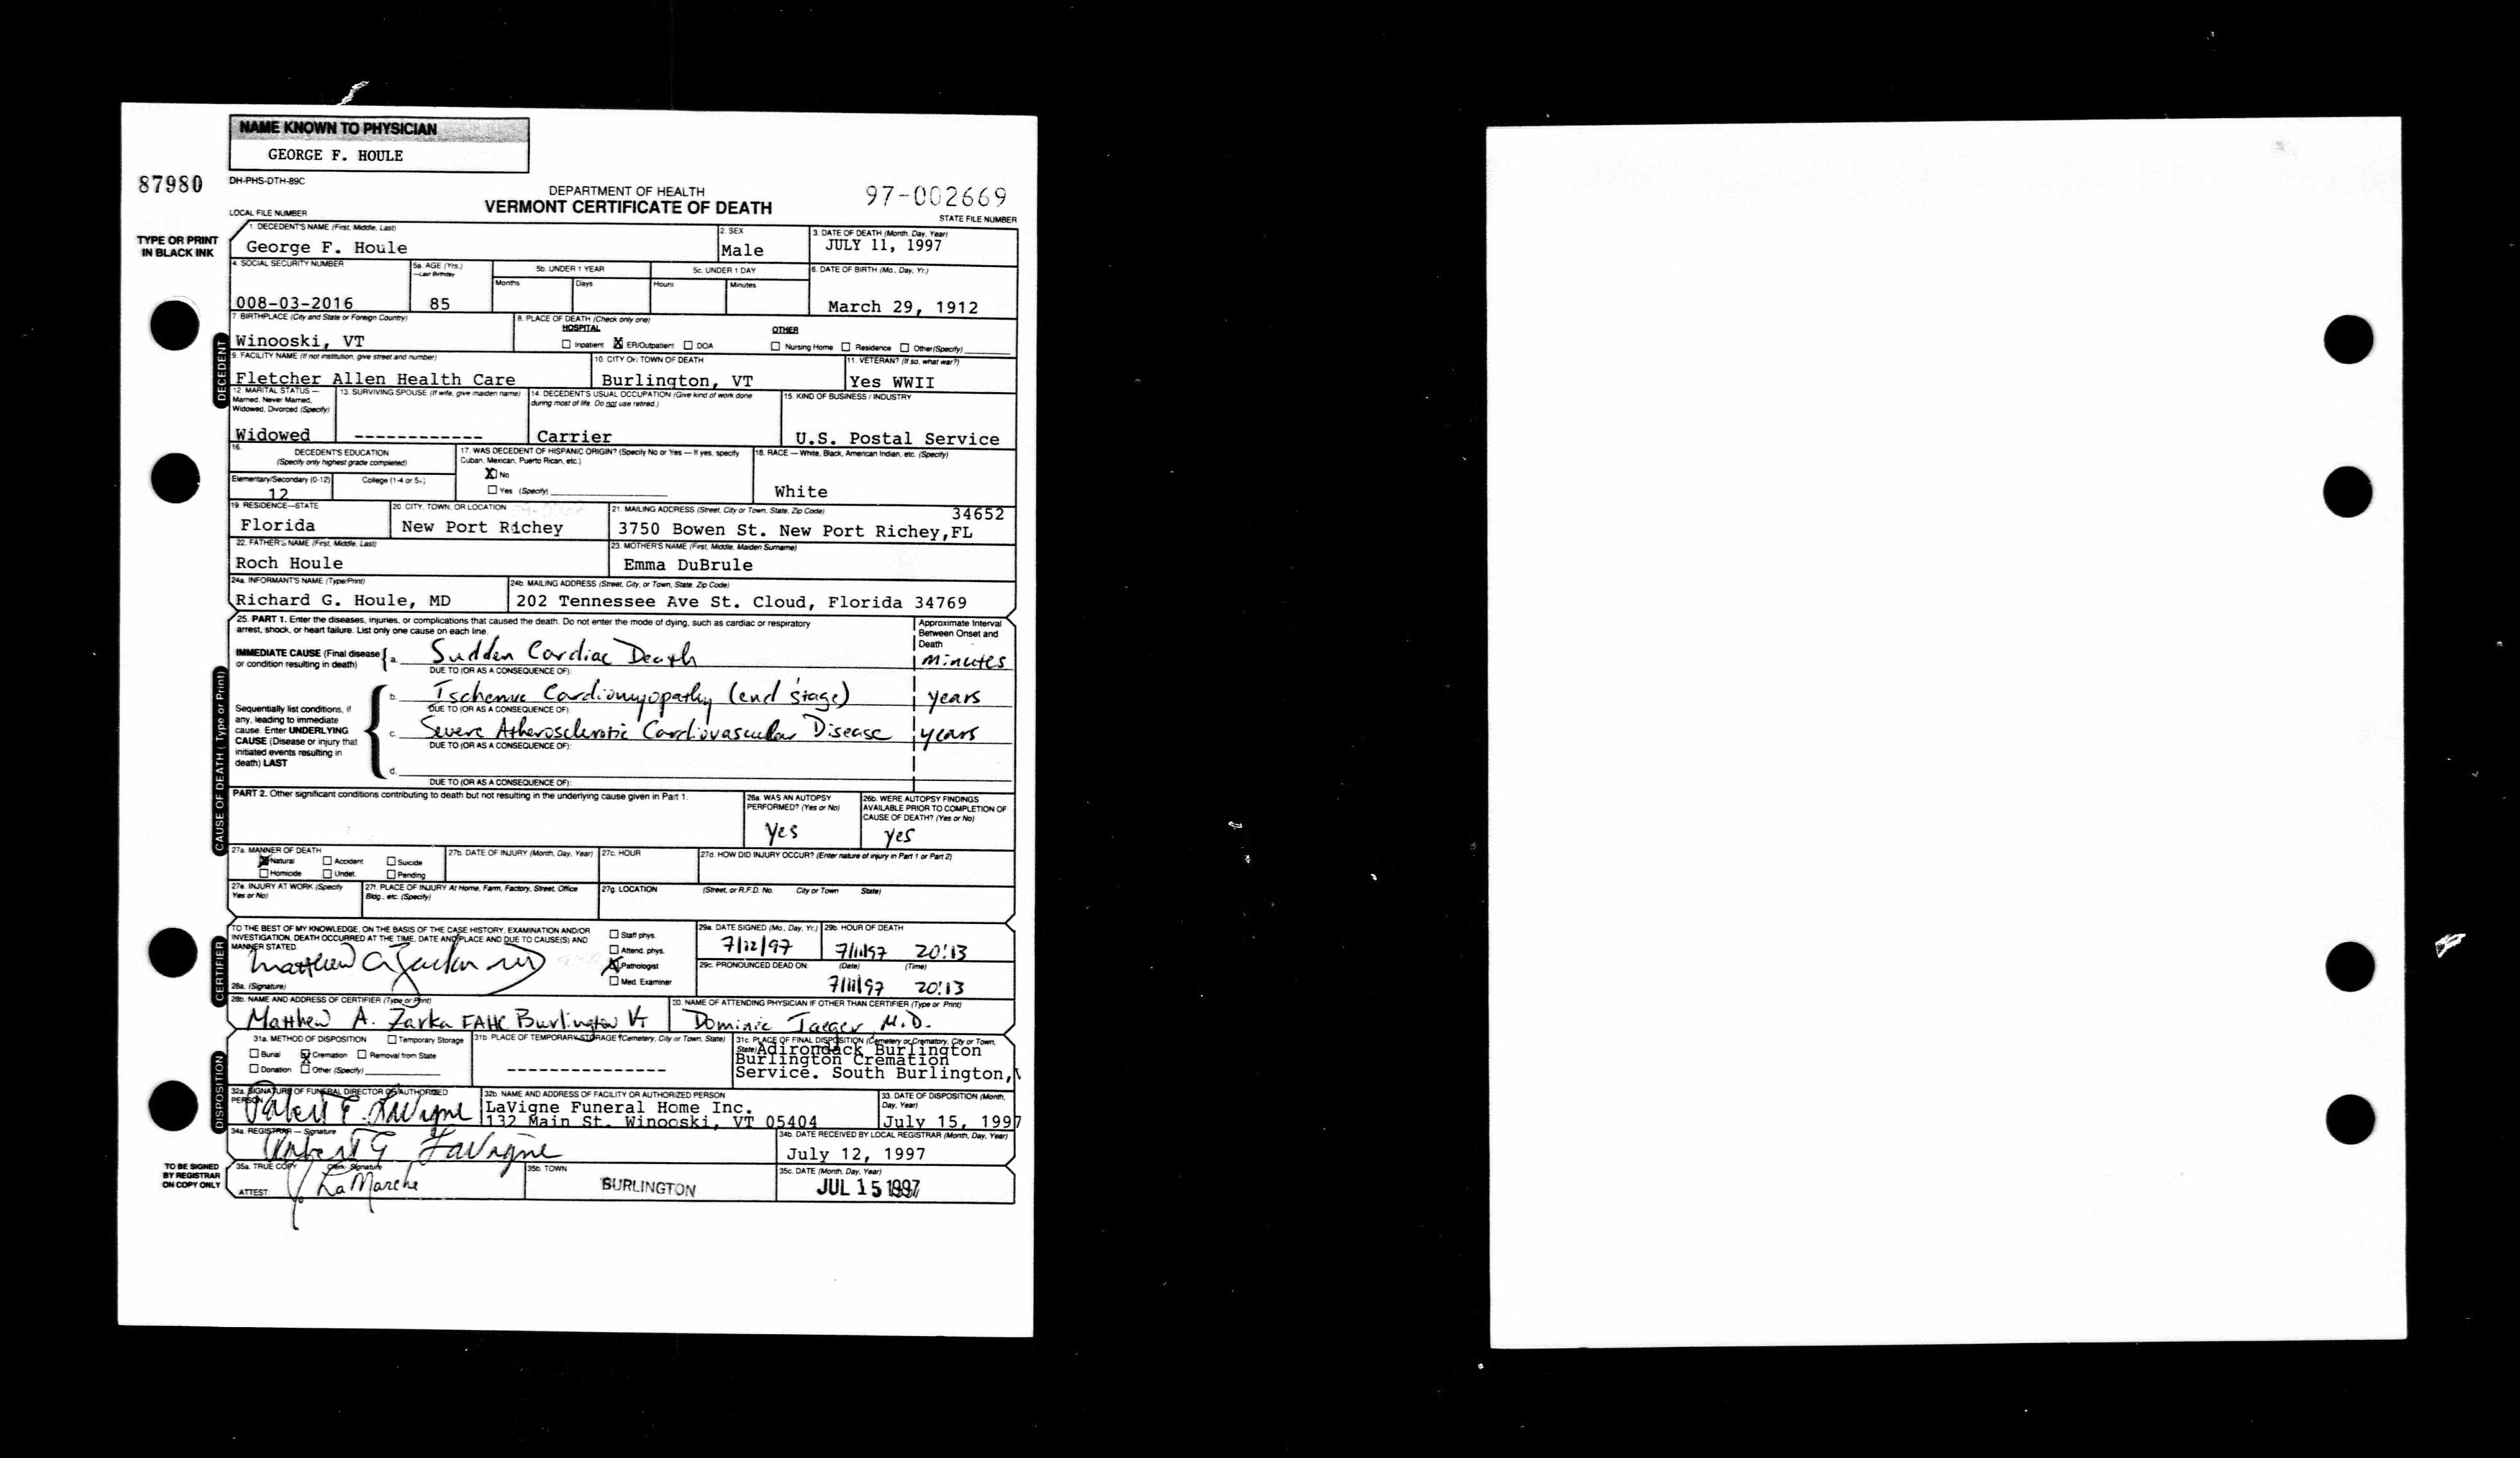 NAME KNOWN TO PHYSICIAN
GEORGE F. HOULE
87980
DH-PHS-DTH-89C
DEPARTMENT OF HEALTH
VERMONT CERTIFICATE OF DEATH
97-002669
LOCAL FILE NUMBER
STATE FILE NUMBER
TYPE OR PRINT
IN BLACK INK
1. DECEDENT'S NAME (First, Middle, Last)
George F. Houle
2. SEX
Male
3. DATE OF DEATH (Month, Day, Year)
JULY 11, 1997
4. SOCIAL SECURITY NUMBER
008-03-2016
5a. AGE (Yrs.)
—Last Birthday
85
5b. UNDER 1 YEAR
Months
Days
5c. UNDER 1 DAY
Hours
Minutes
6. DATE OF BIRTH (Mo., Day, Yr.)
March 29, 1912
DECEDENT
7. BIRTHPLACE (City and State or Foreign Country)
Winooski, VT
8. PLACE OF DEATH (Check only one)
HOSPITAL
OTHER
Inpatient X ER/Outpatient DOA
Nursing Home Residence Other (Specify)
9. FACILITY NAME (If not institution, give street and number)
Fletcher Allen Health Care
10. CITY OR TOWN OF DEATH
Burlington, VT
11. VETERAN? (If so, what war?)
Yes WWII
12. MARITAL STATUS —
Married, Never Married,
Widowed, Divorced (Specify)
Widowed
13. SURVIVING SPOUSE (If wife, give maiden name)
------------
14. DECEDENT'S USUAL OCCUPATION (Give kind of work done
during most of life. Do not use retired.)
Carrier
15. KIND OF BUSINESS / INDUSTRY
U.S. Postal Service
16.
DECEDENT'S EDUCATION
(Specify only highest grade completed)
Elementary/Secondary (0-12)
College (1-4 or 5+)
12
17. WAS DECEDENT OF HISPANIC ORIGIN? (Specify No or Yes — If yes, specify
Cuban, Mexican, Puerto Rican, etc.)
X No
Yes (Specify)
18. RACE — White, Black, American Indian, etc. (Specify)
White
19. RESIDENCE—STATE
Florida
20. CITY, TOWN, OR LOCATION
New Port Richey
21. MAILING ADDRESS (Street, City or Town, State, Zip Code)
34652
3750 Bowen St. New Port Richey,FL
22. FATHER'S NAME (First, Middle, Last)
Roch Houle
23. MOTHER'S NAME (First, Middle, Maiden Surname)
Emma DuBrule
24a. INFORMANT'S NAME (Type/Print)
Richard G. Houle, MD
24b. MAILING ADDRESS (Street, City, or Town, State, Zip Code)
202 Tennessee Ave St. Cloud, Florida 34769
CAUSE OF DEATH (Type or Print)
25. PART 1. Enter the diseases, injuries, or complications that caused the death. Do not enter the mode of dying, such as cardiac or respiratory
arrest, shock, or heart failure. List only one cause on each line.
Approximate Interval
Between Onset and
Death
IMMEDIATE CAUSE (Final disease
or condition resulting in death)
a. Sudden Cardiac Death
minutes
DUE TO (OR AS A CONSEQUENCE OF):
b. Ischemic Cardiomyopathy (end stage)
years
DUE TO (OR AS A CONSEQUENCE OF):
Sequentially list conditions, if
any, leading to immediate
cause. Enter UNDERLYING
CAUSE (Disease or injury that
initiated events resulting in
death) LAST
c. Severe Atherosclerotic Cardiovascular Disease
years
DUE TO (OR AS A CONSEQUENCE OF):
d.
DUE TO (OR AS A CONSEQUENCE OF):
PART 2. Other significant conditions contributing to death but not resulting in the underlying cause given in Part 1.
26a. WAS AN AUTOPSY
PERFORMED? (Yes or No)
Yes
26b. WERE AUTOPSY FINDINGS
AVAILABLE PRIOR TO COMPLETION OF
CAUSE OF DEATH? (Yes or No)
Yes
27a. MANNER OF DEATH
X Natural Accident Suicide
Homicide Undet. Pending
27b. DATE OF INJURY (Month, Day, Year)
27c. HOUR
27d. HOW DID INJURY OCCUR? (Enter nature of injury in Part 1 or Part 2)
27e. INJURY AT WORK (Specify
Yes or No)
27f. PLACE OF INJURY At Home, Farm, Factory, Street, Office
Bldg., etc. (Specify)
27g. LOCATION
(Street, or R.F.D. No. City or Town State)
CERTIFIER
TO THE BEST OF MY KNOWLEDGE, ON THE BASIS OF THE CASE HISTORY, EXAMINATION AND/OR
INVESTIGATION, DEATH OCCURRED AT THE TIME, DATE AND PLACE AND DUE TO CAUSE(S) AND
MANNER STATED.
Matthew A Zarka MD
28a. (Signature)
Staff phys.
Attend. phys.
X Pathologist
Med. Examiner
29a. DATE SIGNED (Mo., Day, Yr.)
7/12/97
29b. HOUR OF DEATH
7/11/97 20:13
29c. PRONOUNCED DEAD ON:
(Date)
(Time)
7/11/97 20:13
28b. NAME AND ADDRESS OF CERTIFIER (Type or Print)
Matthew A. Zarka FAHC Burlington Vt
30. NAME OF ATTENDING PHYSICIAN IF OTHER THAN CERTIFIER (Type or Print)
Dominic Jaeger, M.D.
DISPOSITION
31a. METHOD OF DISPOSITION
Temporary Storage
Burial X Cremation Removal from State
Donation Other (Specify)
31b. PLACE OF TEMPORARY STORAGE (Cemetery, City or Town, State)
---------------
31c. PLACE OF FINAL DISPOSITION (Cemetery or Crematory, City or Town,
State) Adirondack Burlington
Burlington Cremation
Service. South Burlington,
32a. SIGNATURE OF FUNERAL DIRECTOR OR AUTHORIZED
PERSON
32b. NAME AND ADDRESS OF FACILITY OR AUTHORIZED PERSON
LaVigne Funeral Home Inc.
132 Main St. Winooski, VT 05404
33. DATE OF DISPOSITION (Month,
Day, Year)
July 15, 1997
34a. REGISTRAR — Signature
LaVigne
34b. DATE RECEIVED BY LOCAL REGISTRAR (Month, Day, Year)
July 12, 1997
TO BE SIGNED
BY REGISTRAR
ON COPY ONLY
35a. TRUE COPY
Clerk- Signature
ATTEST:
LaMarche
35b. TOWN
BURLINGTON
35c. DATE (Month, Day, Year)
JUL 15 1997